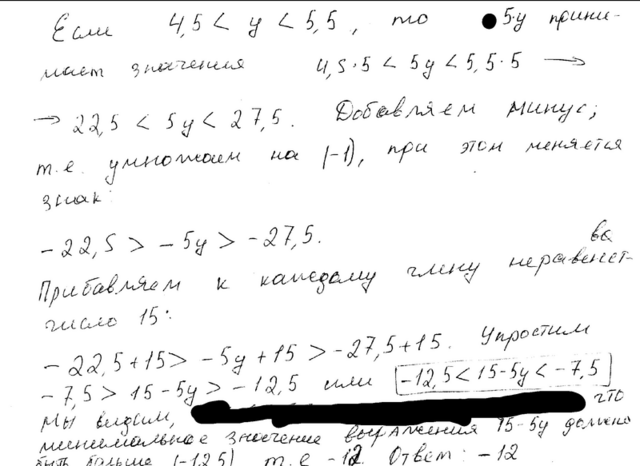 Если 4,5 < y < 5,5, то 5·y прини-
мает значения 4,5·5 < 5y < 5,5·5 →
→ 22,5 < 5y < 27,5. Добавляем минус,
т.е. умножаем на (-1), при этом меняется
знак:
-22,5 > -5y > -27,5.
Прибавляем к каждому члену неравенст-
ва
число 15:
-22,5+15 > -5y+15 > -27,5+15. Упростим
-7,5 > 15-5y > -12,5 или -12,5 < 15-5y < -7,5
Мы видим, что
минимальное значение выражения 15-5y должно
быть больше (-12,5) т.е -12. Ответ: -12